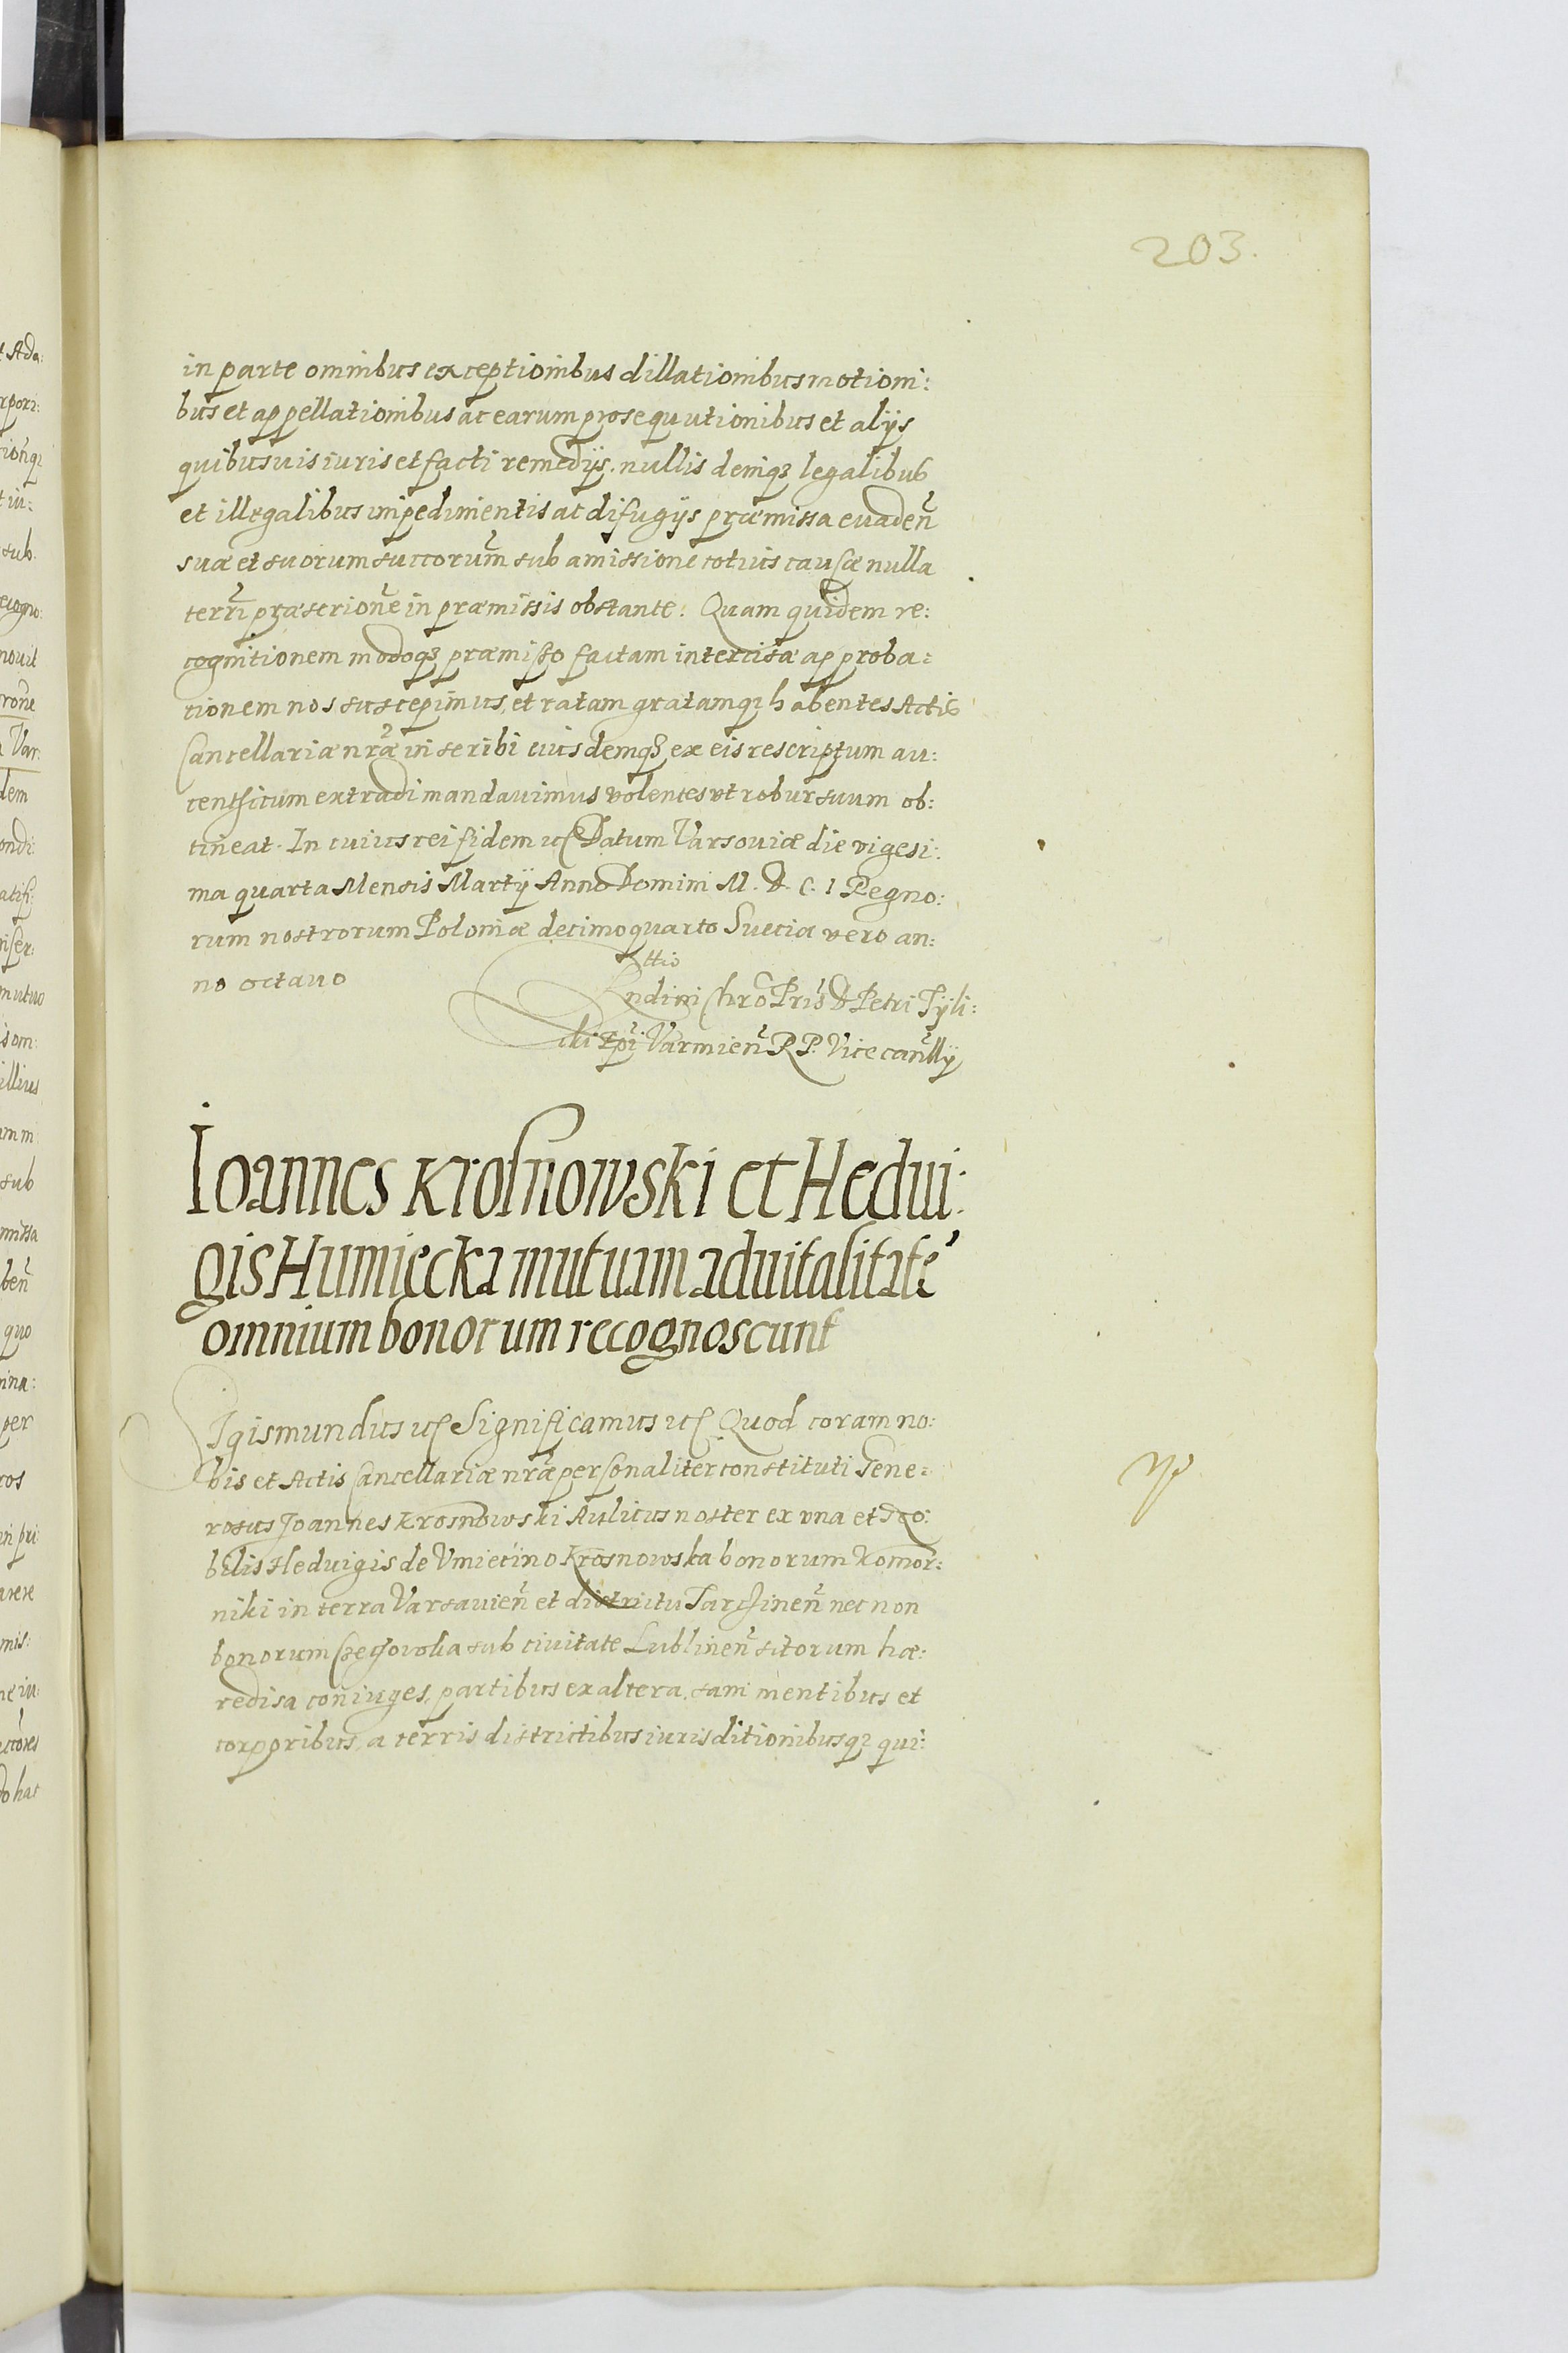 203.
in parte omnibus exceptionibus dillationibus motioni:
bus et appellationibus ac earum prosequutionibus et alijs
quibusuis iuris et facti remedijs, nullis deniqȝ legalibus
et illegalibus impedimentis ac difugijs præmissa euadeñ
sua et suorum succorum̃ sub amissione totius causæ nulla
terr̃i præscrioñe in præmissis obstante. Quam quidem re:
cognitionem modoqȝ præmisso factam intercisæ approba:
tionem nos suscepimus, et ratam gratamqȝ habentes Actis
Cancellariæ nr̃æ inscribi eiusdemqȝ ex eis rescriptum au:
tenthicum extradi mandauimus volentes vt robur suum ob:
tineat. In cuius rei fidem etc̃ Datum Varsouiæ die vigesi:
ma quarta Mensis Martij Anno Domini M. D. C. I Regno:
rum nostrorum Poloniæ decimo quarto Sueciæ vero an:
no octauo
Rndi in Chro Pris D Petri Tyli:
cki Epi Varmieñ R P. Vicecañllij
Ioannes Krosnowski et Hedui:
gis Humiecka mutuam aduitalitatẽ
omnium bonorum recognoscunt
Sigismundus etc̃ Significamus etc̃ Quod coram no:
bis et Actis Cancellariæ nr̃æ personaliter constituti Gene:
rosus Joannes Krosnowski Aulicus noster ex vna et No:
bilis Heduigis de Vmiecino Krosnowska bonorum Komor:
niki in terra Varsauieñ et districtu TarcZineñ nec non
bonorum Czechowka sub ciuitate Lublineñ sitorum hæ:
redisa coniuges, partibus ex altera, sani mentibus et
corporibus, a terris districtibus iurisditionibusqȝ qui: